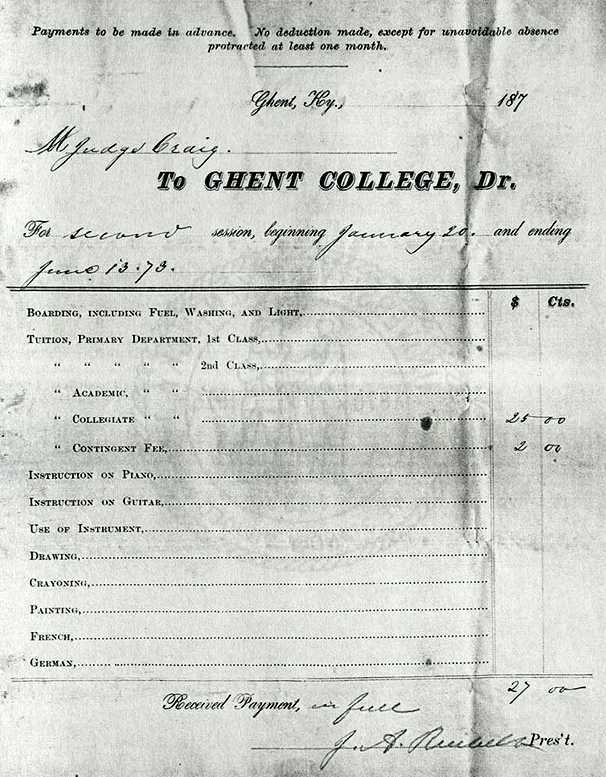 Payments to be made in advance. No deduction made, except for unavoidable absence
protracted at least one month.
Ghent, Ky., 187
M Judge Craig.
To GHENT COLLEGE, Dr.
For second session, beginning January 20. and ending
June 13. 73.
$ Cts.
BOARDING, INCLUDING FUEL, WASHING, AND LIGHT,
TUITION, PRIMARY DEPARTMENT, 1st CLASS,
“ “ “ “ “ 2nd CLASS,
“ ACADEMIC, “ “
“ COLLEGIATE “ “ 25 00
“ CONTINGENT FEE, 2 00
INSTRUCTION ON PIANO,
INSTRUCTION ON GUITAR,
USE OF INSTRUMENT,
DRAWING,
CRAYONING,
PAINTING,
FRENCH,
GERMAN,
27 00
Received Payment, in full
J. A. Pres't.